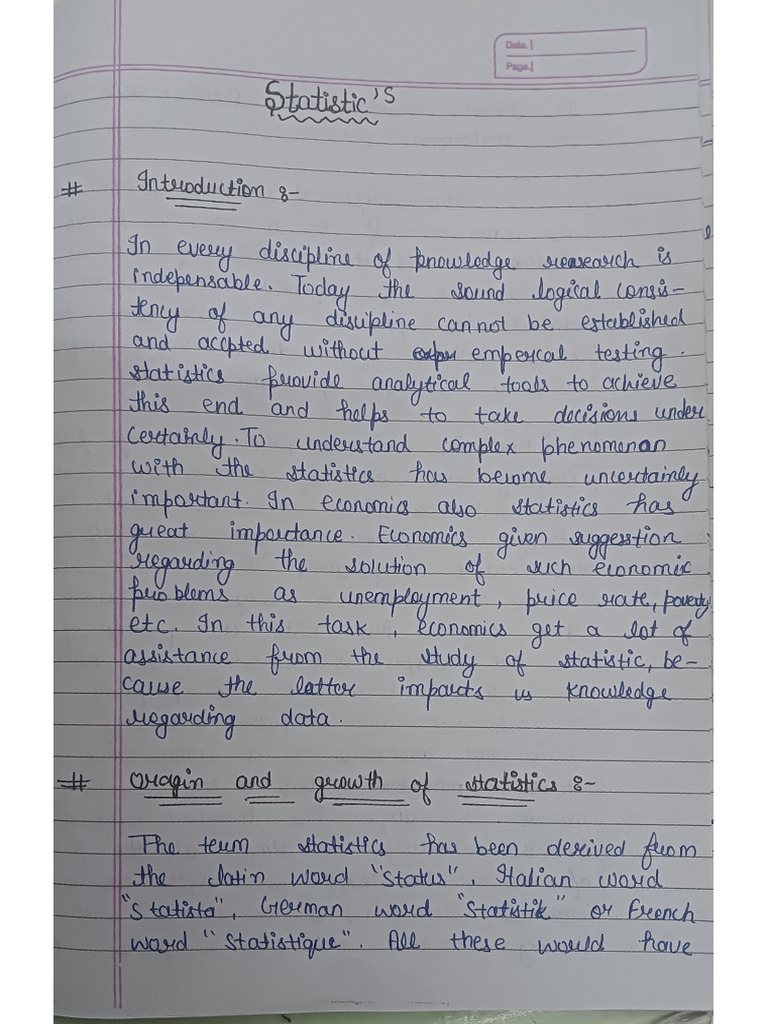 Date.
Page.
Statistic's
# Introduction :-
In every discipline of knowledge research is
indepensable. Today the sound logical consis-
tency of any discipline cannot be established
and accpted without empercal testing.
statistics provide analytical tools to achieve
this end and helps to take decisions under
certainly. To understand complex phenomenan
with the statistics has become uncertainly
important. In economics also statistics has
great importance. Economics given suggesstion
regarding the solution of such economic
problems as unemployment, price rate, poverty
etc. In this task, economics get a lot of
assistance from the study of statistic, be-
cause the latter imparts us knowledge
regarding data.
# Oragin and growth of statistics :-
The term statistics has been derived from
the latin word "Status", Italian word
"Statista", German word "Statistik" or French
word "Statistique". All these would have